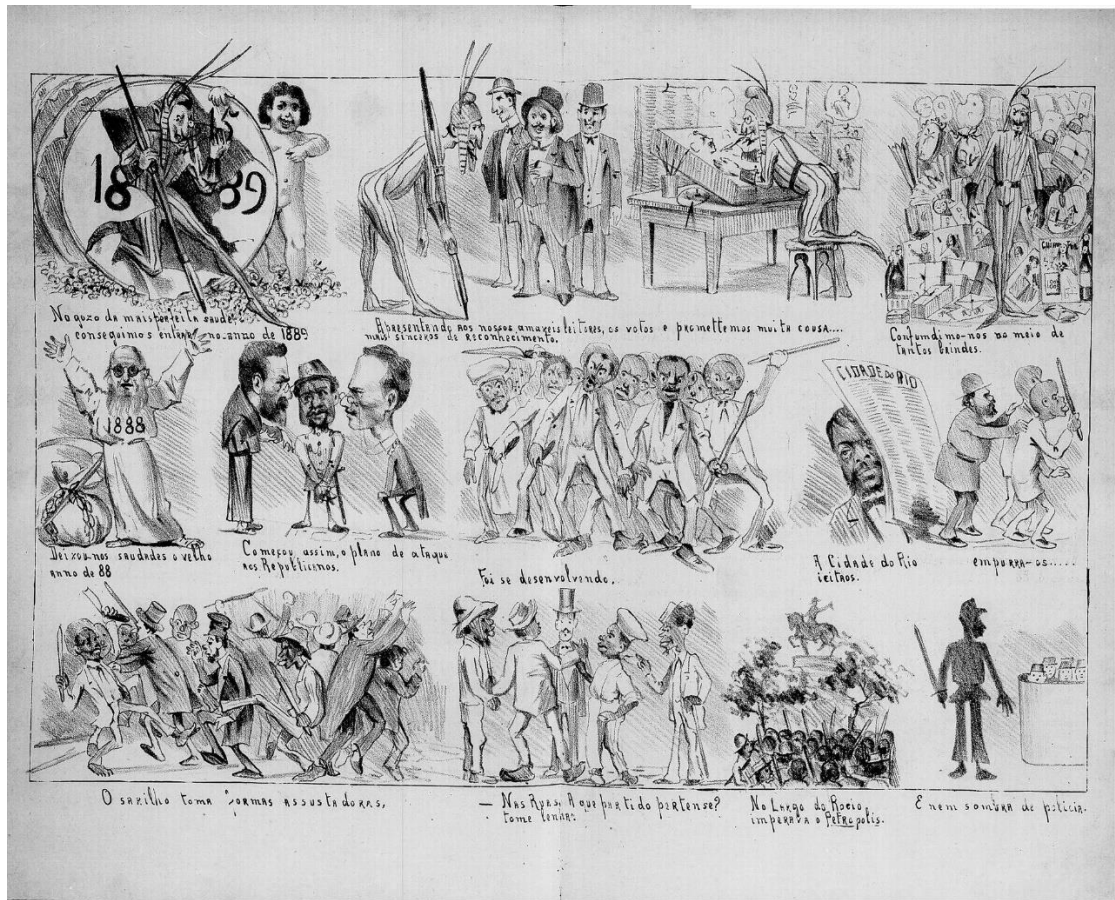 18 89
No gozo da mais perfeita saude,
conseguimos entrar no anno de 1889
Apresentando aos nossos amaveis leitores, os votos e promettemos muita cousa....
mais sinceros de reconhecimento.
Confundimo-nos no meio de
tantos brindes.
1888
CIDADE DO RIO
Deixou-nos saudades o velho
anno de 88
Começou assim, o plano de ataque
aos Republicanos.
Foi se desenvolvendo.
A Cidade do Rio empurra-os.....
icitaos.
O sarilho toma formas assustadoras,
— Nas Ruas, A que partido pertense?
tome lenha:
No Largo do Rocio,
imperava o Petropolis.
E nem sombra de policia.